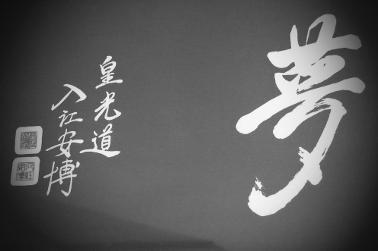 夢
皇光道
入江安博